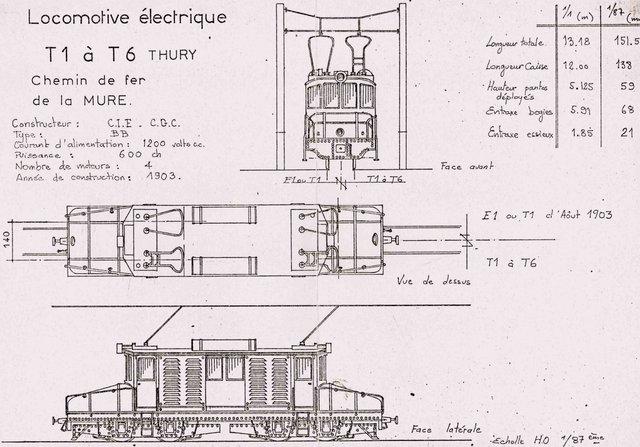 Locomotive électrique
T1 à T6 THURY
Chemin de fer
de la MURE.
Constructeur : C.I.E. C.G.C.
Type : BB
Courant d'alimentation : 1200 volts cc.
Puissance : 600 ch
Nombre de moteurs : 4
Année de construction : 1903.
1/1 (m) 1/87 (m)
Longueur totale 13.18 151.5
Longueur Caisse 12.00 138
Hauteur pantos déployés 5.125 59
Entraxe bogies 5.91 68
Entraxe essieux 1.85 21
Face avant
E1 ou T1 T1 à T6
140
E1 ou T1 d'Août 1903
T1 à T6
Vue de dessus
Face latérale
Echelle HO 1/87 ème